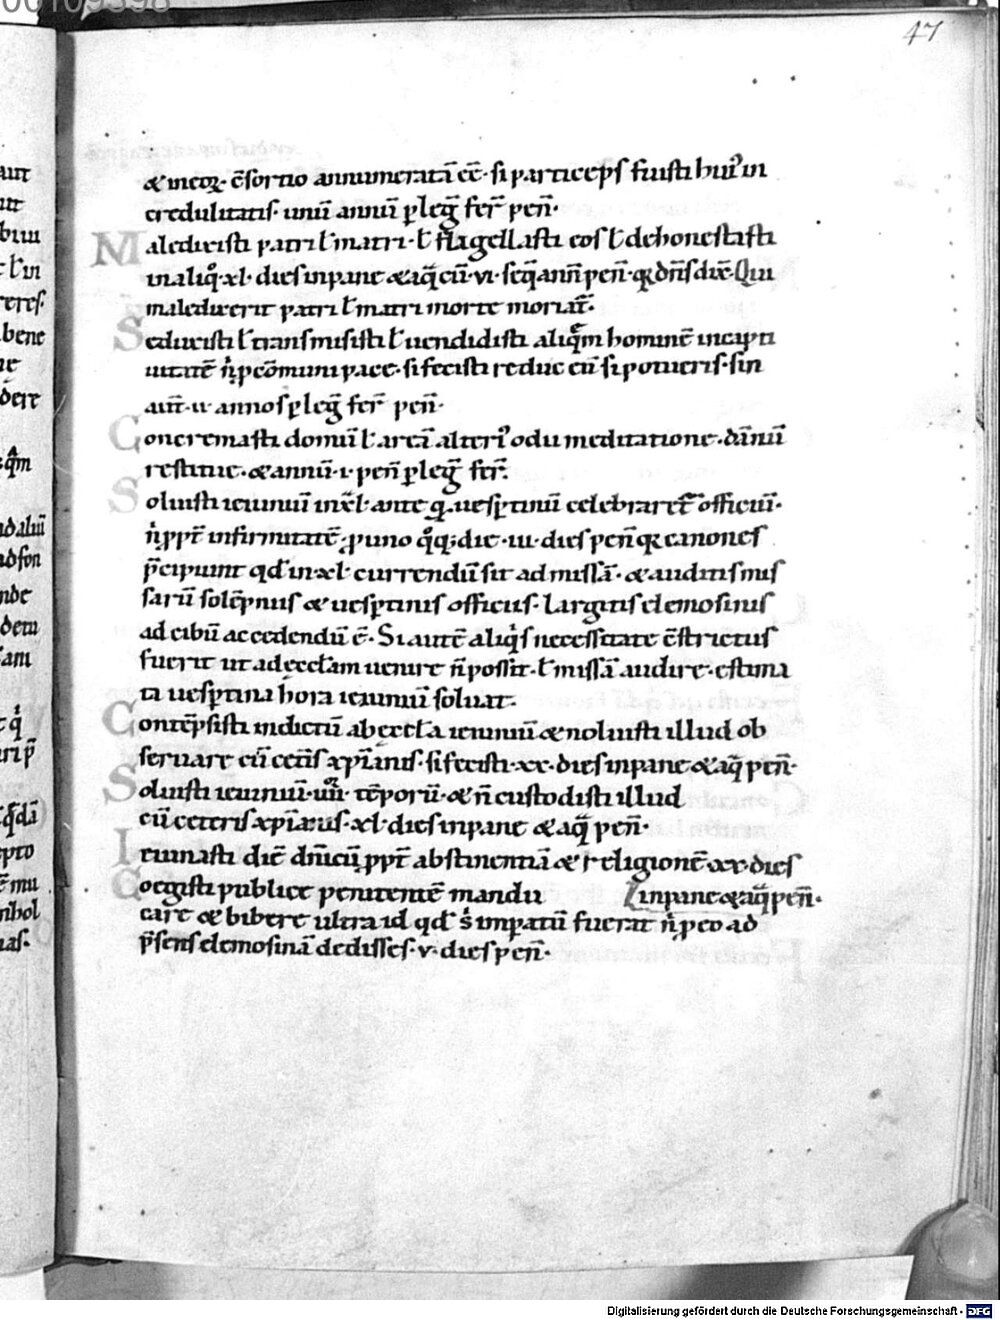 47
& in eoꝝ c̄sortio annumeratā eē· si particeps fuisti hui᷒ in
credulitatis· unū annū ꝑ leg̃ fer̄ pen̄·
Maledixisti patri ł matri· ł flagellasti eos ł dehonestasti
in aliq̊· xl· dies in pane & aq̃ cū· vi· seq̃ ann̄ pen̄· qꝛ dn̄s dix̄· Qui
maledixerit patri ł matri morte moriat᷑·
Seduxisti ł transmisisti ł uendidisti aliq̄m hominē in capti
uitatē n̊ p cōmuni pace· si fecisti reduc eū si potueris· sin
aut̄· ii· annos ꝑ leg̃ fer̄ pen̄·
Concremasti domū ł areā alteri᷒ odii meditatione· dānū
restitue· & annū· i· pen̄ ꝑ leg̃ fer̄·
Soluisti ieiuniū in xl̄· ante q̄ uesꝑtinū celebraret᷑ officiū·
n̊ ꝓpt̄ infirmitatē· ꝓ uno q̊q; die· iii· dies pen̄ qꝛ canones
p̄cipiunt qd̄ in xl̄· currendū sit ad missā· & auditis mis
sarū solēpniis & uesꝑtinis officiis· largitis elemosinis
ad cibū accedendū ē· Si autē aliq̊s necessitate c̄strictus
fuerit ut ad eccłam uenire n̄ possit· ł missā audire· estima
ta uesꝑtina hora ieiuniū soluat·
Contēpsisti indictū ab eccła ieiuniū & noluisti illud ob
seruare cū cet̄is xp̄ianis· si fecisti· xx· dies in pane & aq̃ pen̄·
Soluisti ieiuniū· iiii· tēporū· & n̄ custodisti illud
cū ceteris xp̄ianis· xl· dies in pane & aq̃ pen̄·
Ieiunasti diē dn̄icū ꝓpt̄ abstinentiā & religionē· xx· dies
in pane & aq̃ pen̄·
Coegisti publice penitentē mandu
care & bibere ultra id qd̄ s̊ imꝑatū fuerat n̊ p eo ad
p̄sens elemosinā dedisses· v· dies pen̄·
Digitalisierung gefördert durch die Deutsche Forschungsgemeinschaft · DFG